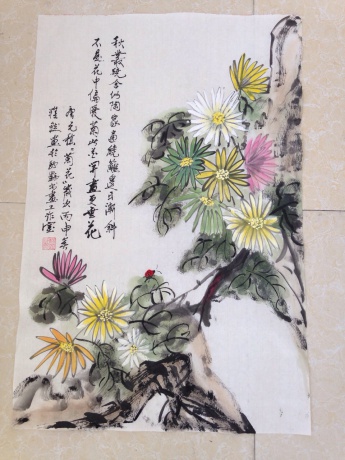 秋叢繞舍似陶家遍繞籬邊日漸斜
不是花中偏愛菊此花開盡更無花
唐元稹“菊花”詩 丙申
畫於 書畫工作室